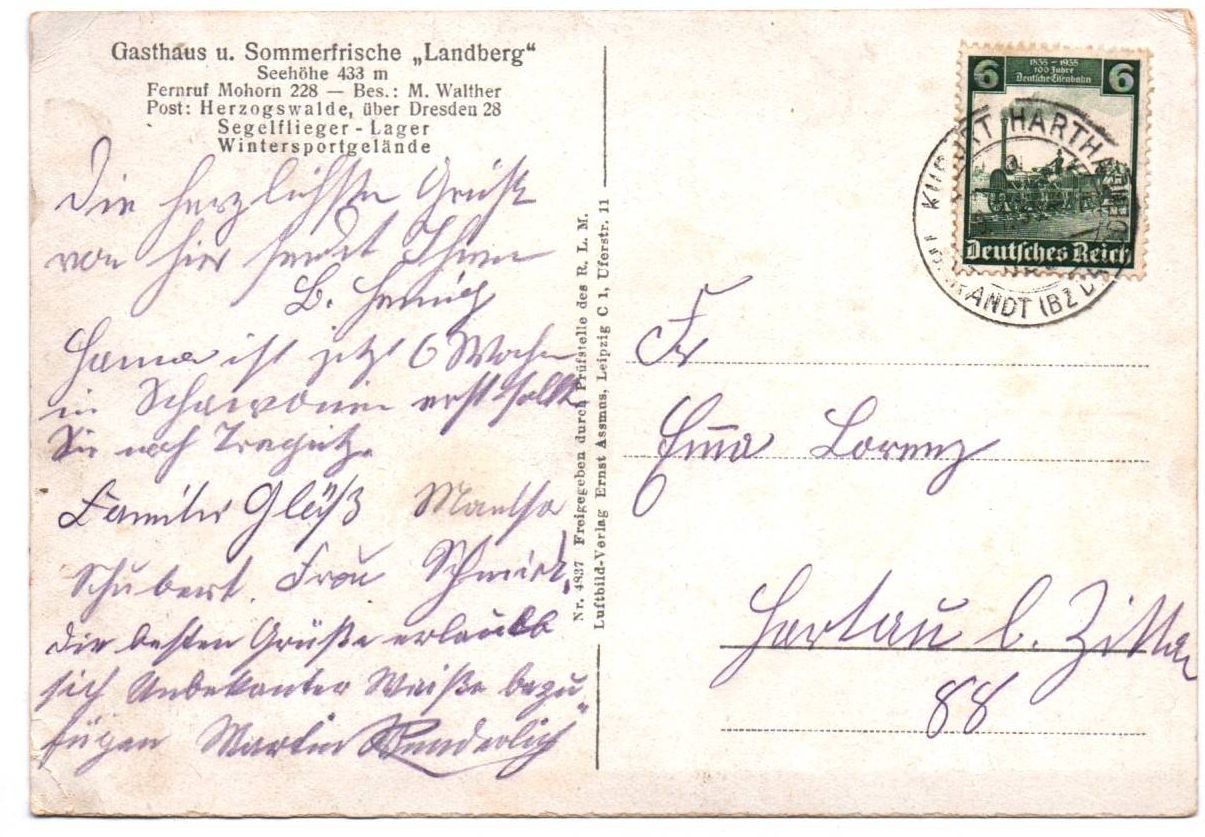 Gasthaus u. Sommerfrische „Landberg“
Seehöhe 433 m
Fernruf Mohorn 228 — Bes.: M. Walther
Post: Herzogswalde, über Dresden 28
Segelflieger - Lager
Wintersportgelände
Die herzlichsten Grüße
von hier sendet Ihnen
B. Hennig
ist jetzt 6 Wochen
in erst sollte
Sie nach
Familie Gläß Martha
Schubert. Frau Schmidt,
die besten Grüße erlaubt
sich Unbekanter Waiße bezu
fügen Martin Wunderlich
Nr. 4837 Freigegeben durch Prüfstelle des R. L. M.
Luftbild-Verlag Ernst Assmus, Leipzig C 1, Uferstr. 11
6 1835 - 1935 6
100 Jahre
Deutsche Eisenbahn
Deutsches Reich
KURORT HARTHA
Fr
Em̄a Lorenz
Hartau b. Zittau
88